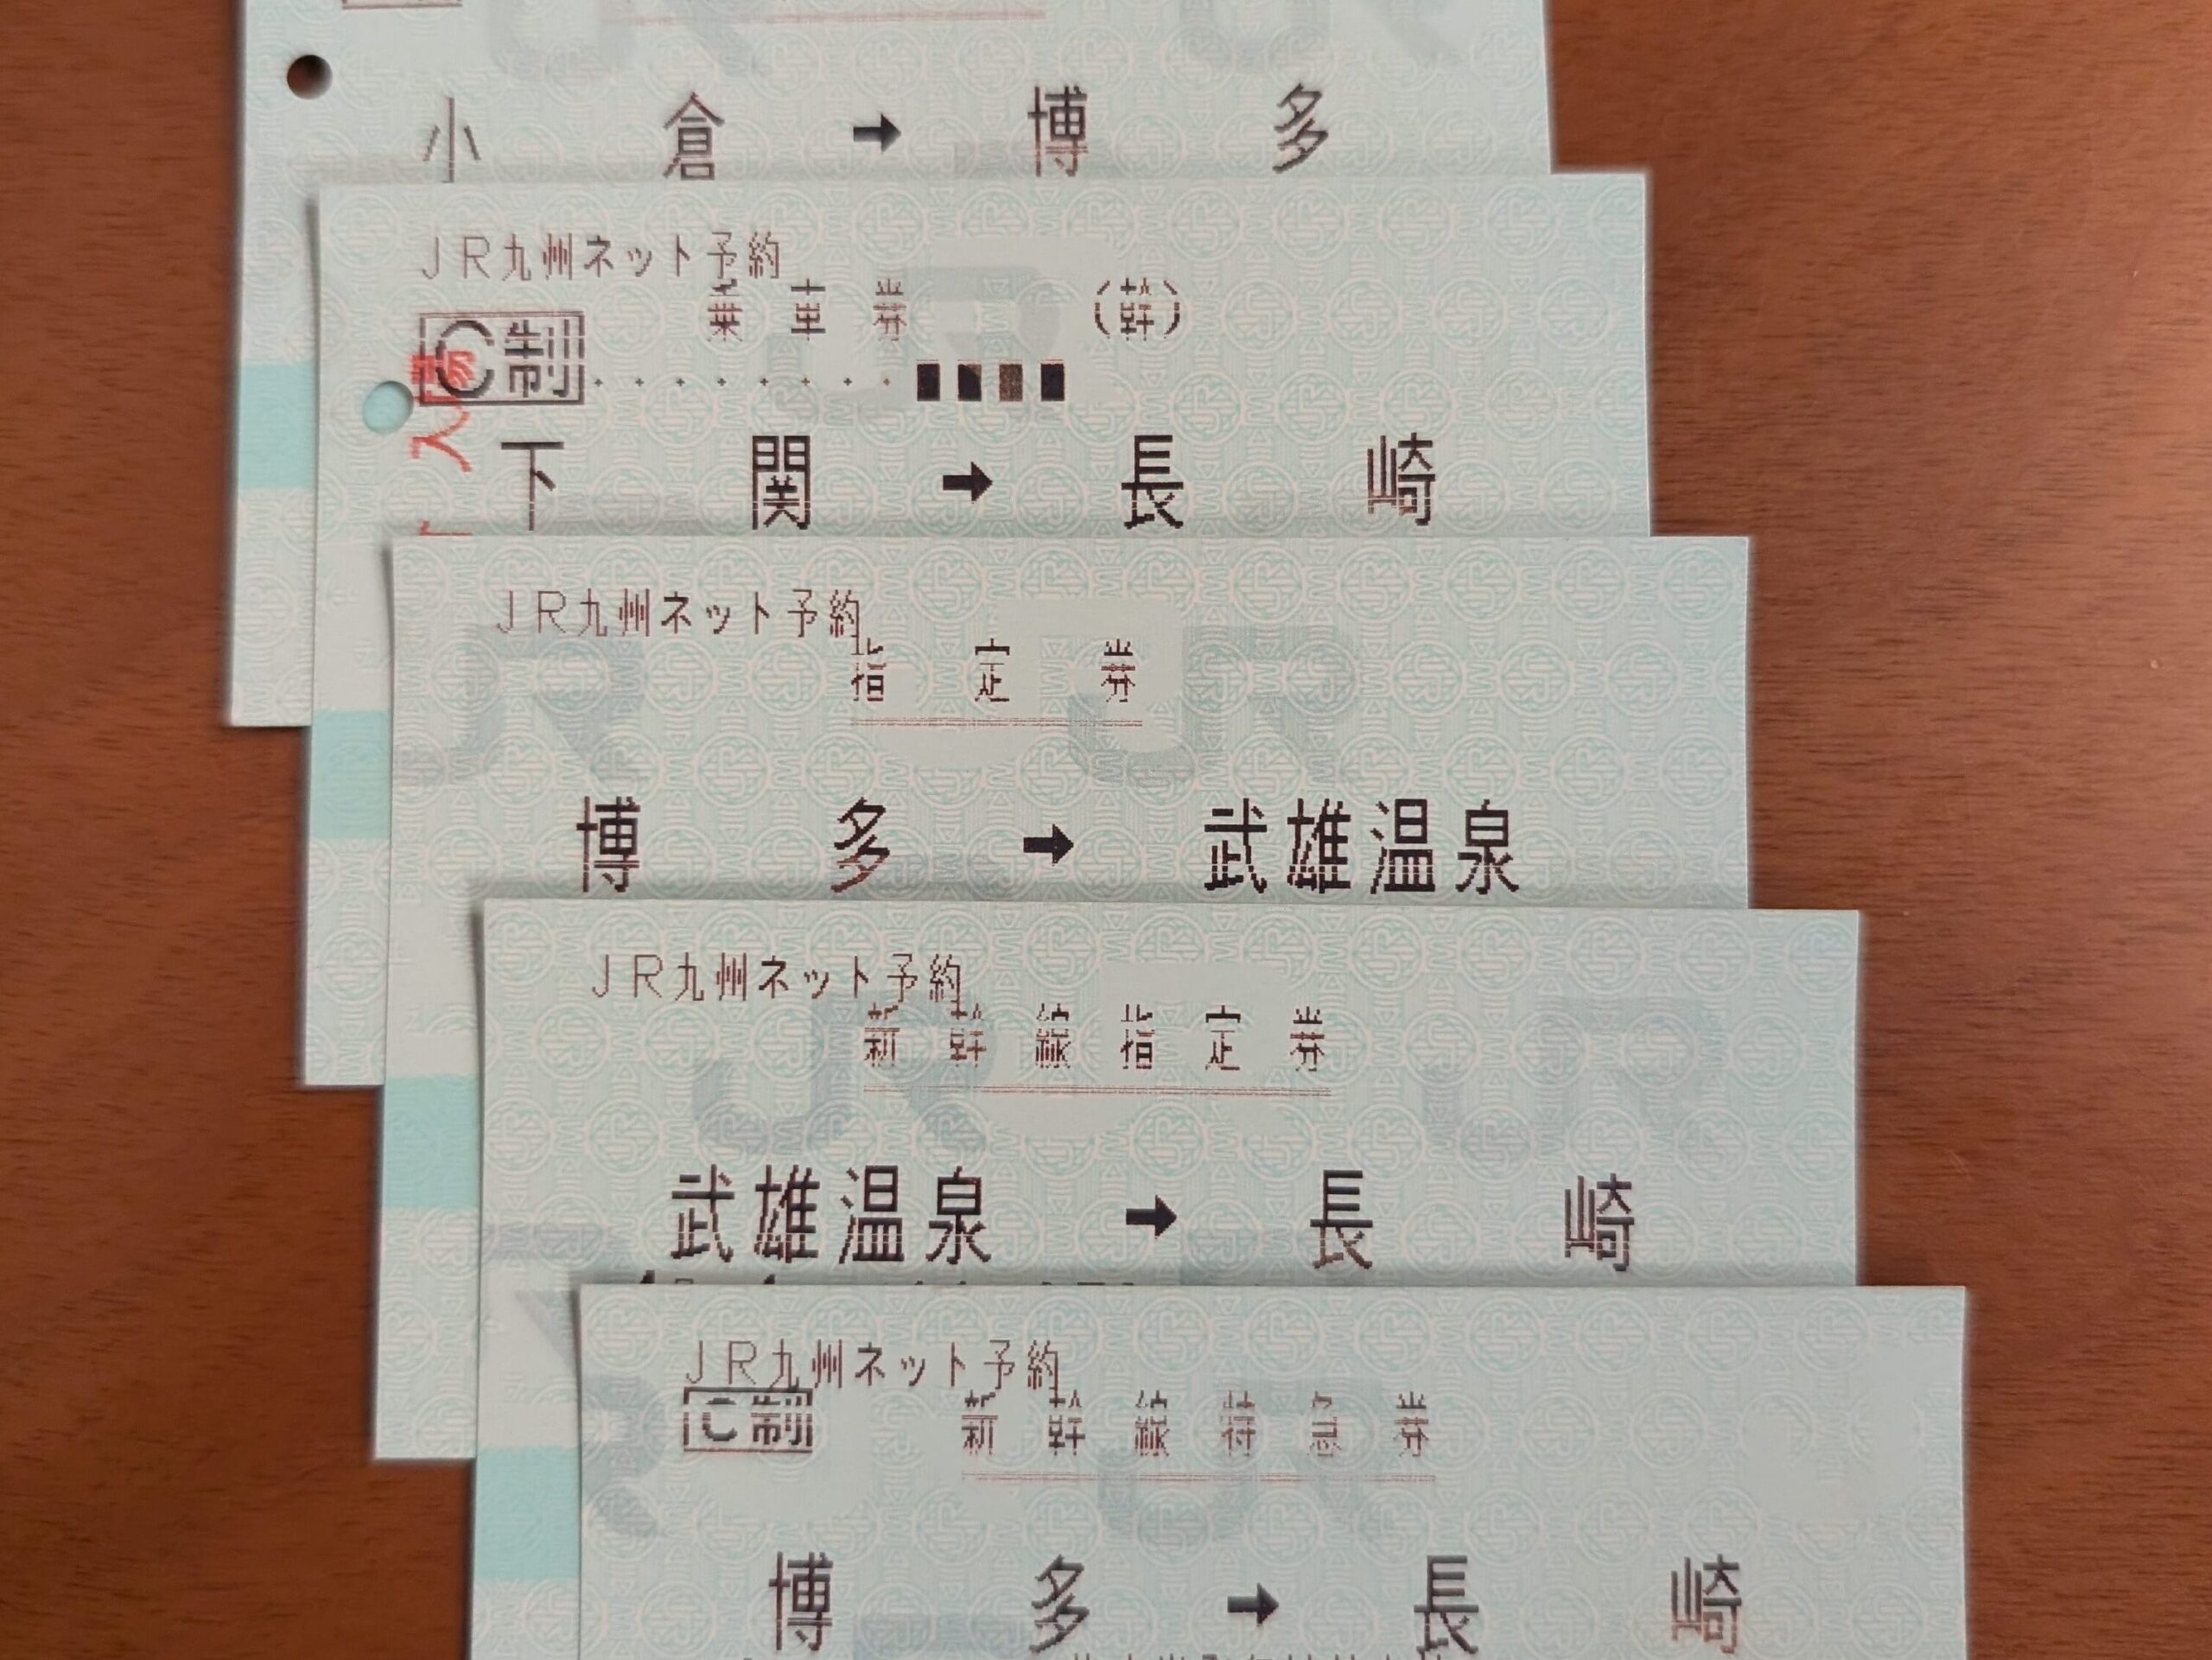 小倉➡博多
JR九州ネット予約
乗車券(幹)
C制
入場
下関➡長崎
JR九州ネット予約
指定券
博多➡武雄温泉
JR九州ネット予約
新幹線指定券
武雄温泉➡長崎
JR九州ネット予約
C制 新幹線特急券
博多➡長崎